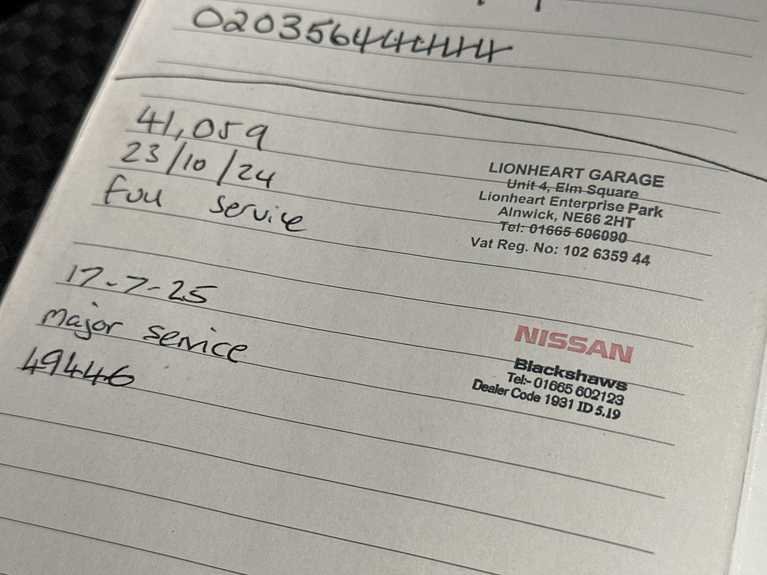 41,059
23/10/24
Full service
LIONHEART GARAGE
Unit 4, Elm Square
Lionheart Enterprise Park
Alnwick, NE66 2HT
Tel: 01665 606090
Vat Reg. No: 102 6359 44
17-7-25
Major service
49446
NISSAN
Blackshaws
Tel:- 01665 602123
Dealer Code 1931 ID 5.19